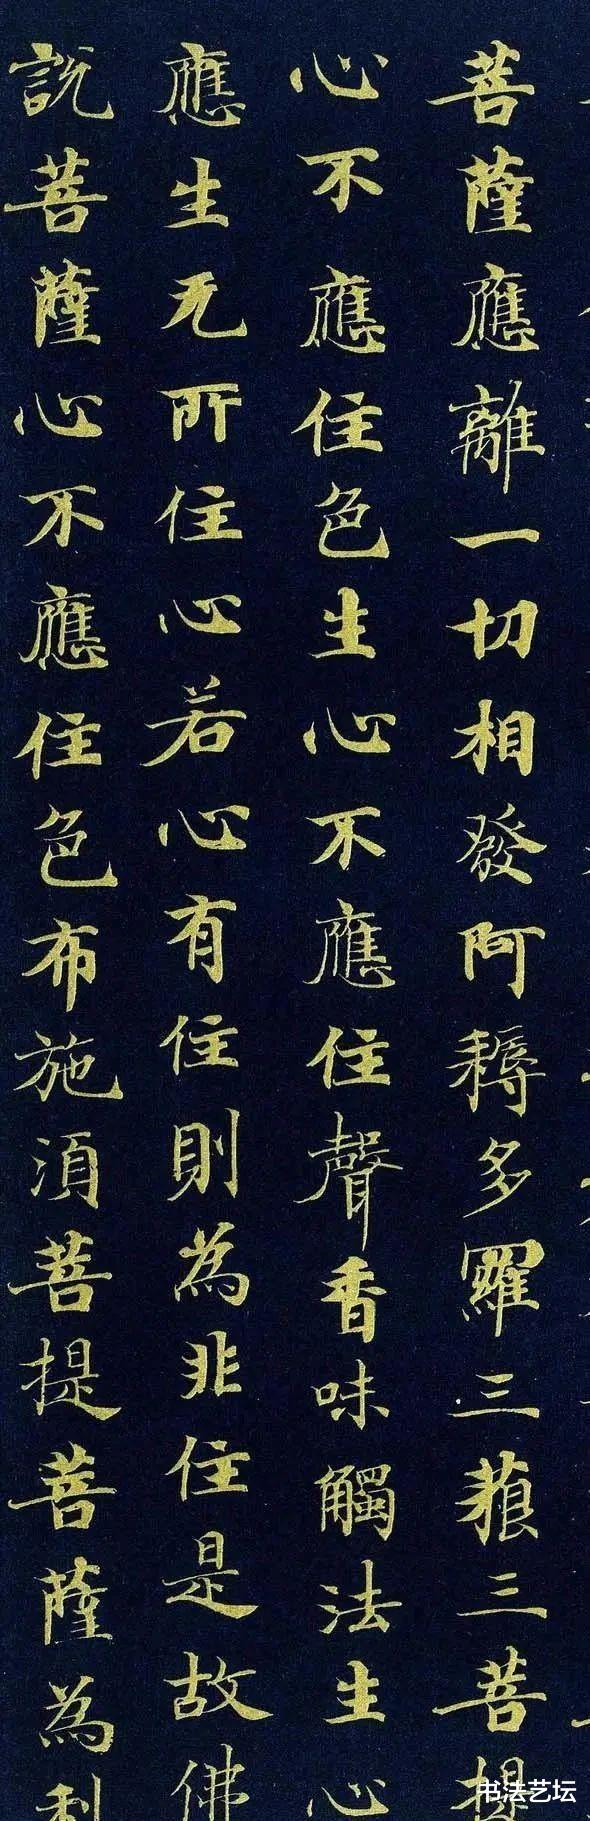 菩薩應離一切相發阿耨多羅三藐三菩提
心不應住色生心不應住聲香味觸法生心
應生无所住心若心有住則為非住是故佛
說菩薩心不應住色布施須菩提菩薩為利
书法艺坛